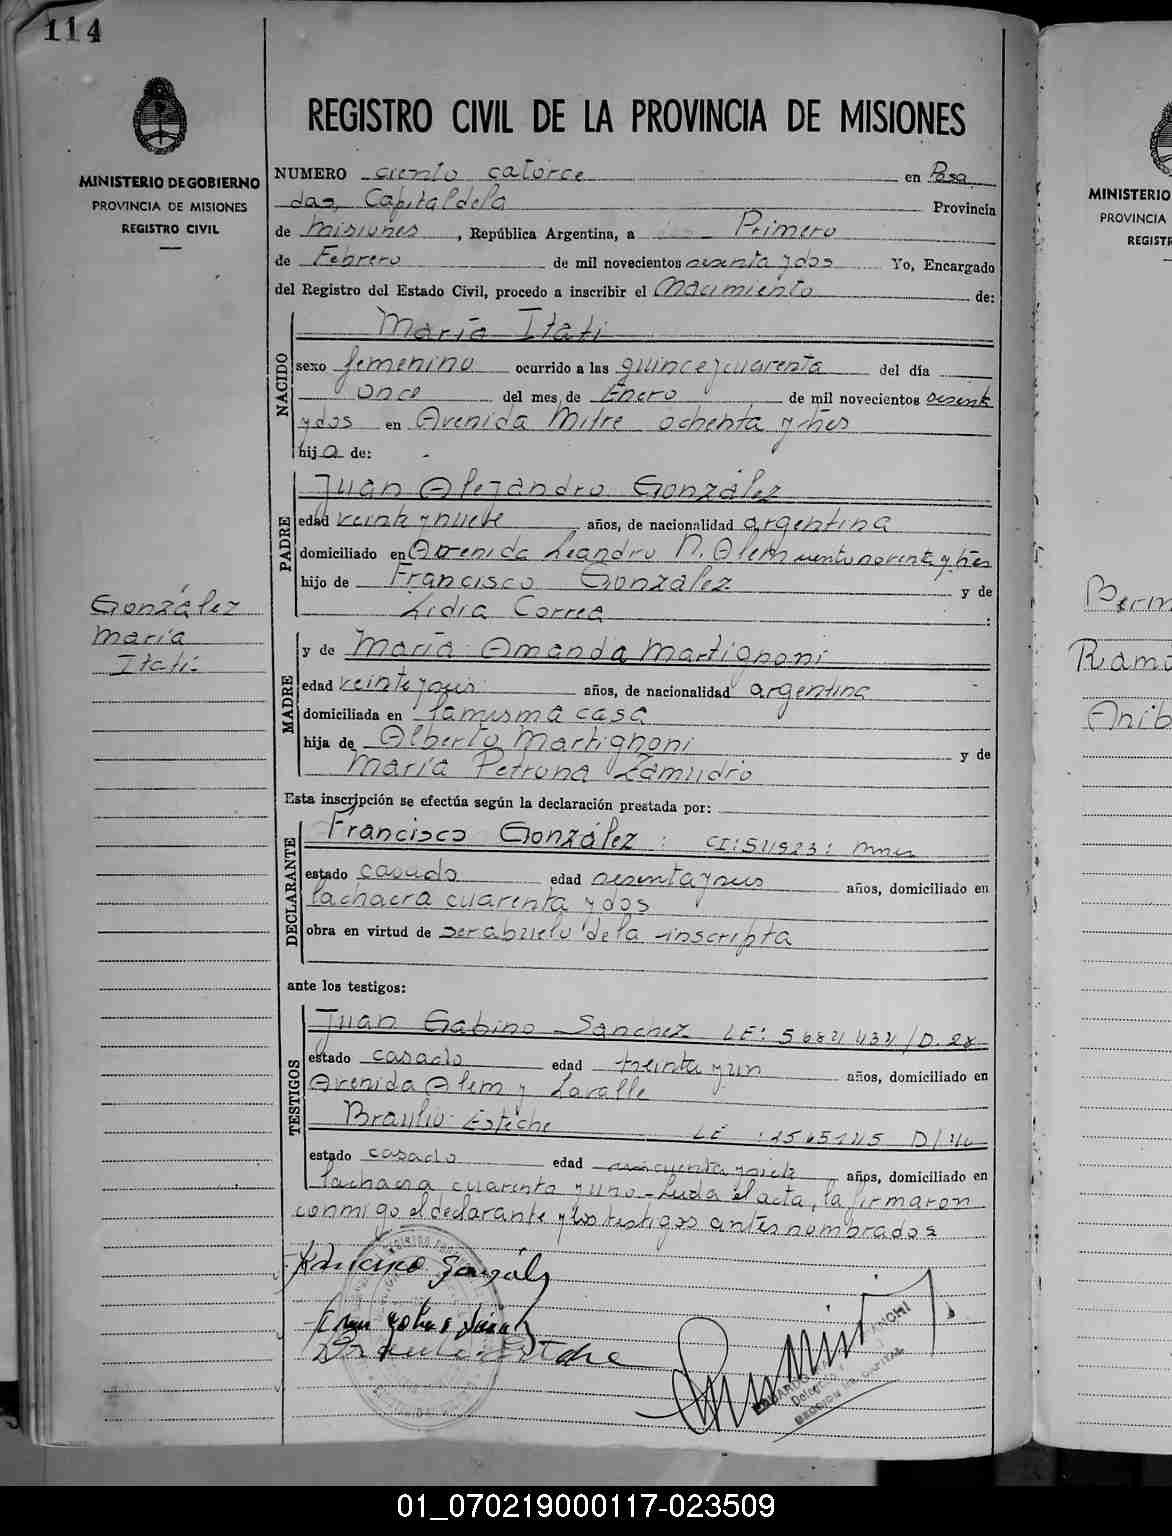 114
MINISTERIO DE GOBIERNO
PROVINCIA DE MISIONES
REGISTRO CIVIL
González
María
Itatí.
REGISTRO CIVIL DE LA PROVINCIA DE MISIONES
NUMERO ciento catorce en Posa
das, Capital de la Provincia
de Misiones, República Argentina, a Primero
de Febrero de mil novecientos sesenta y dos Yo, Encargado
del Registro del Estado Civil, procedo a inscribir el Nacimiento de:
NACIDO
María Itatí
sexo femenino ocurrido a las quince y cuarenta del día
once del mes de Enero de mil novecientos sesenta
y dos en Avenida Mitre ochenta y tres
hija de:
PADRE
Juan Alejandro González
edad veinte y nueve años, de nacionalidad argentina
domiciliado en Avenida Leandro N. Alem ciento noventa y tres
hijo de Francisco González y de
Lidia Correa :
MADRE
y de María Amanda Martignoni
edad veinte y seis años, de nacionalidad argentina
domiciliada en la misma casa
hija de Alberto Martignoni y de
María Petrona Zamudio
Esta inscripción se efectúa según la declaración prestada por:
DECLARANTE
Francisco González: CI:
estado casado edad sesenta y seis años, domiciliado en
la chacra cuarenta y dos
obra en virtud de ser abuelo de la inscripta
ante los testigos:
TESTIGOS
Juan Gabino Sanchez LE:
estado casado edad treinta y un años, domiciliado en
Avenida Alem y Lavalle
Braulio Esteche LE
estado casado edad años, domiciliado en
la chacra cuarenta y uno - Leída el acta, la firmaron
conmigo el declarante y los testigos antes nombrados
Francisco González
MINISTERIO
PROVINCIA
REGISTR
Ramo
Aníb
01_070219000117-023509